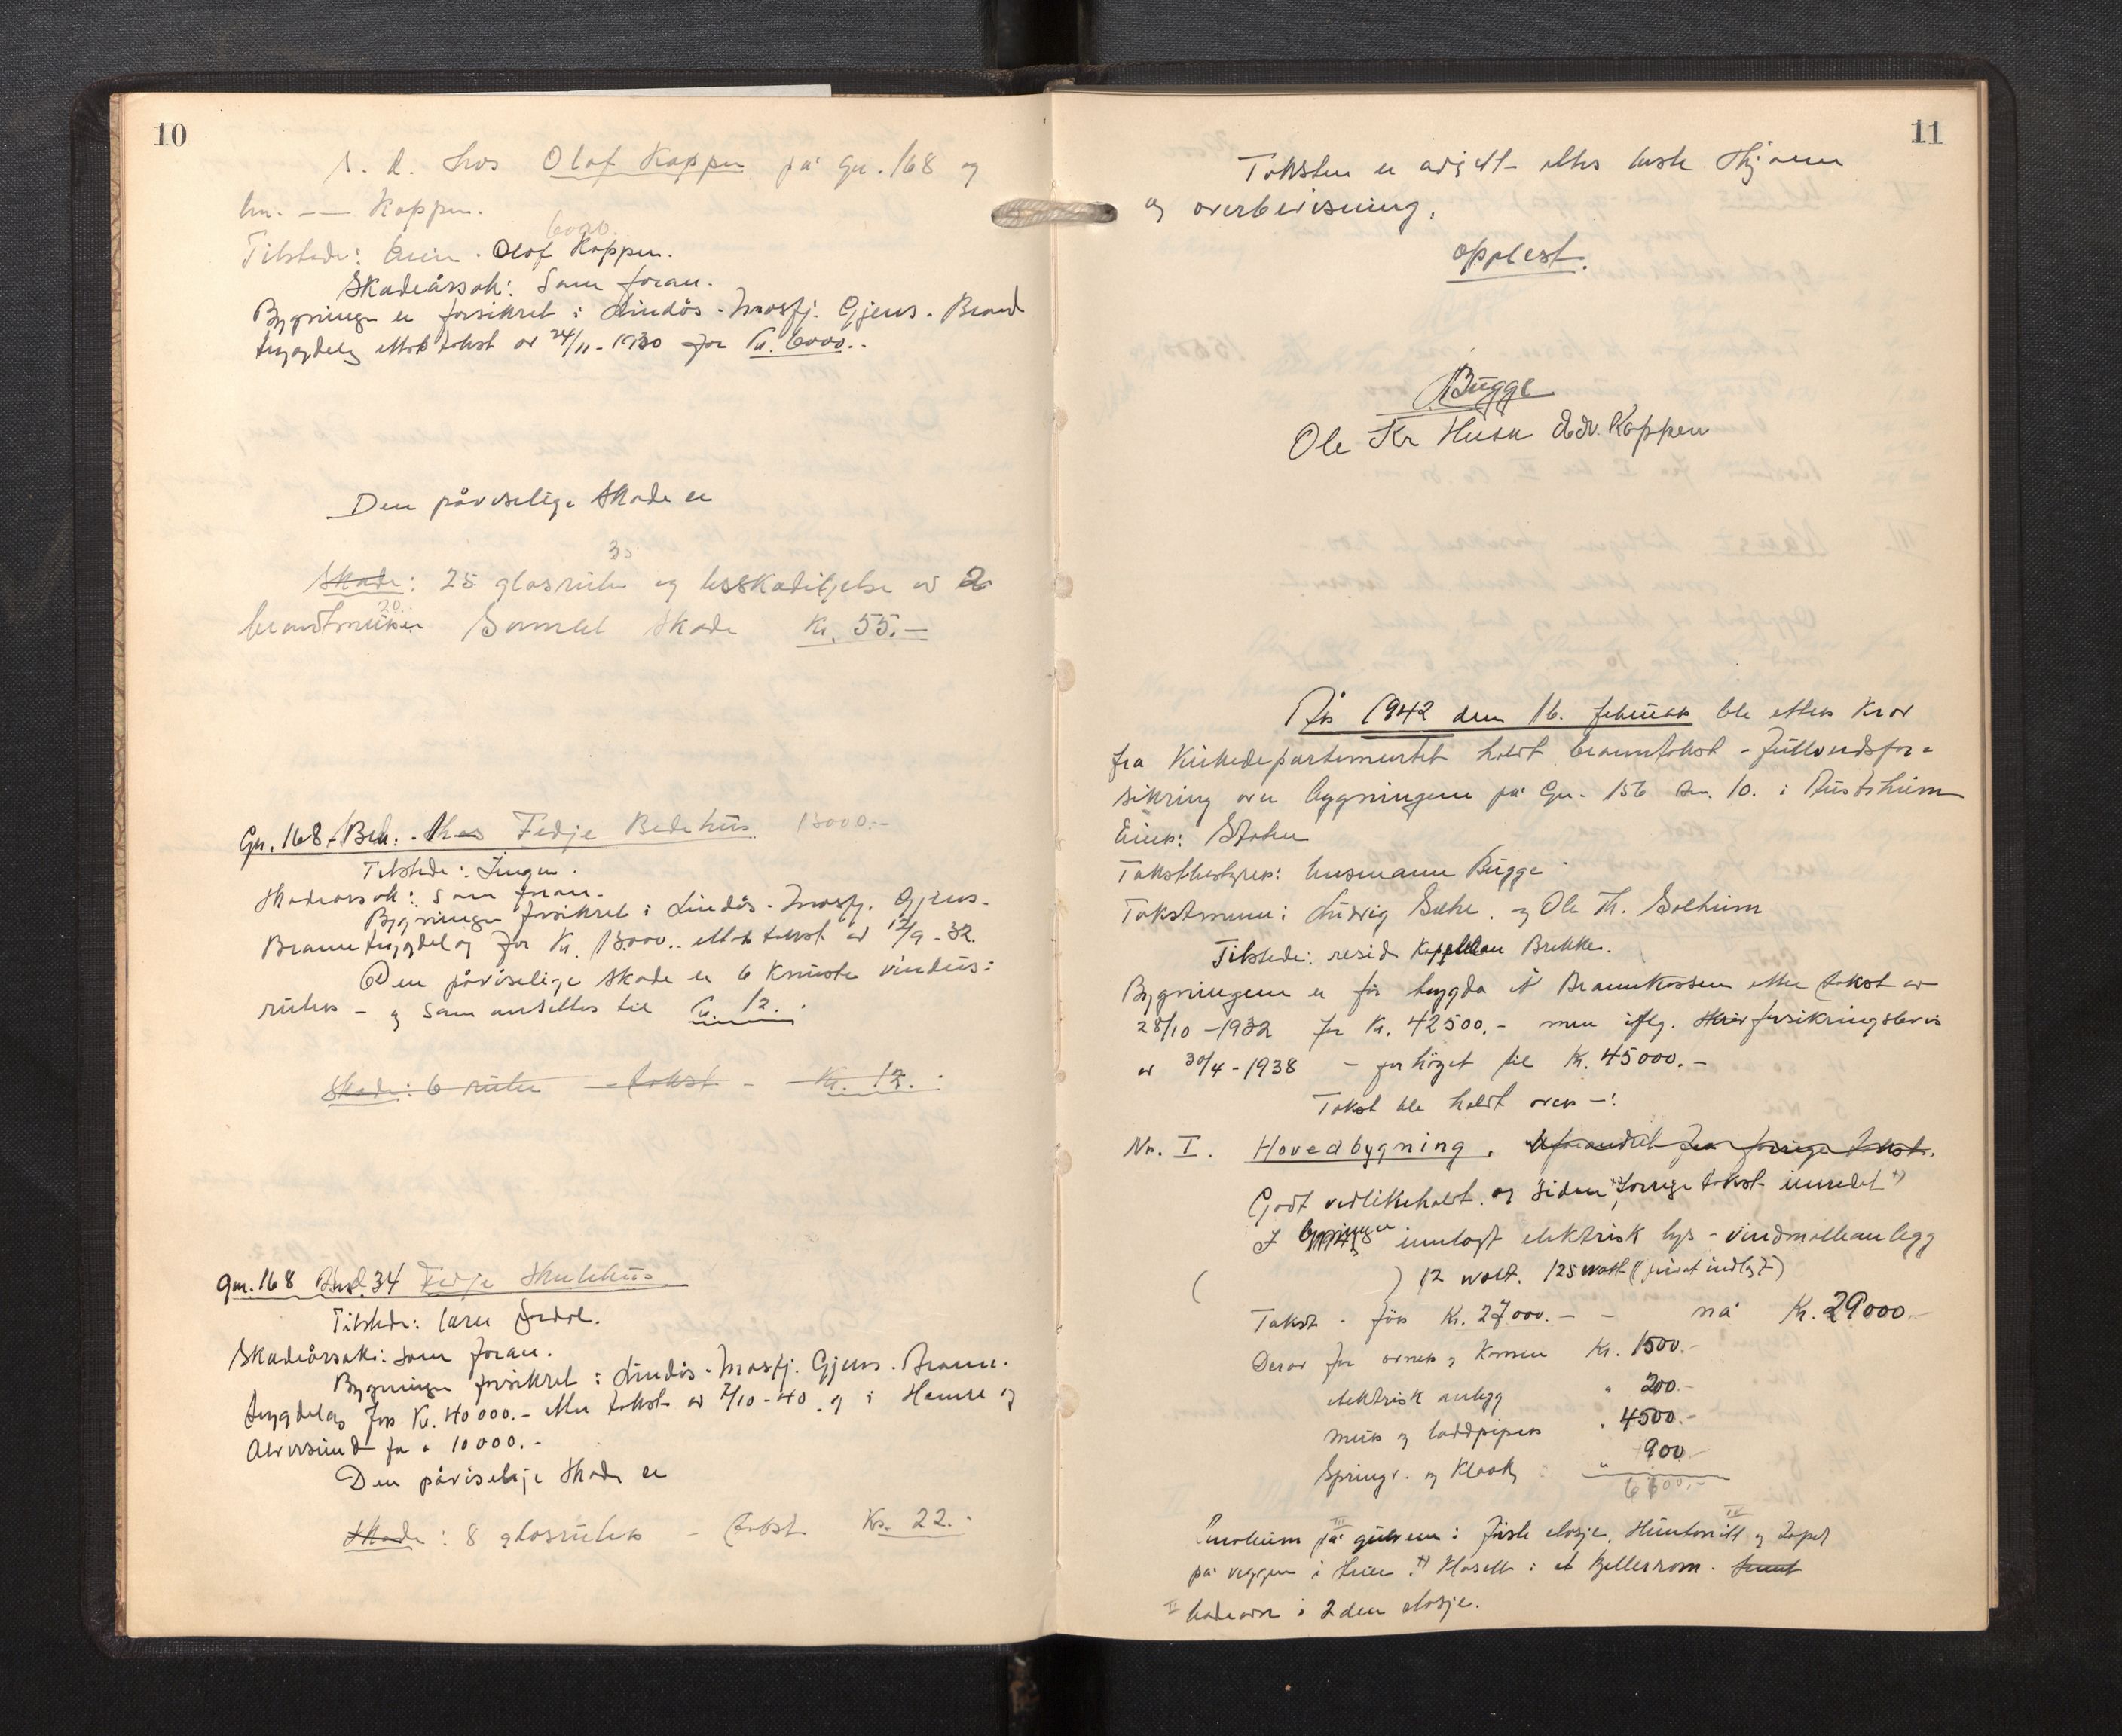 10
S. d. hos Olaf Koppen på gn. 168 og
bn. — Koppen.
6000.
Tilstede: Eier. Olaf Koppen.
Skadeårsak: Som foran.
Bygningen er forsikret i Lindås-Masfj. Gjens. Brand
trygdelag efter takst av 24/11-1930 for Kr. 6000..
Den påviselige skade er
35
Skade: 25 glasruter og beskadigelse av 2
20.
brandmurer Samlet skade Kr. 55.—
Gn. 168 - Bn. - Fedje Bedehus 13000.-
Tilstede: Ingen.
Skadeårsak: Som foran.
Bygningen forsikret i Lindås-Masfj. Gjens.
Branntrygdelag for Kr. 13000.. efter takst av 12/9-32.
Den påviselige skade er 6 knuste vindus:
ruter - og som ansettes til Kr. 12.
Skade: 6 ruter - takst - Kr. 12.
gn. 168 34 Fedje Skulehus
Tilstede:
Skadeårsak: som foran.
Bygningen forsikret i Lindås-Masfj. Gjens. Brann.
trygdelag for Kr. 40000.- efter takst av 2/10-40 og i Hamre og
Alversund for " 10000.-
Den påviselige skade er
Skade: 8 glasruter - takst Kr. 22.-
11
Taksten er avgitt efter beste skjønn
og overbevisning.
Opplest.
Bugge
Ole Kr Husa Edv. Koppen
År 1942 den 16. februar ble efter krav
fra Kirkedepartementet holdt branntakst - fullverdsfor-
sikring over bygningene på Gn. 156 bn. 10. i Austrheim
Eier: Staten
Takstbestyrer: lensmann Bugge
Takstmenn: Ludvig Sæthe. og Ole Th. Solheim
Tilstede: resid. Kappellan Brekke.
Bygningene er før trygda i Brannkassen etter takst av
28/10-1932 for Kr. 42500.- men iflg. forsikringsbevis
av 30/4-1938 - forhøget til Kr. 45000.-
Takst ble holdt over -:
Nr. I. Hovedbygning. Uforandret fra forrige takst.
Godt vedlikeholdt. og siden forrige takst innredet +)
I bygningen innlagt elektrisk lys - vindmølleanlegg
( ) 12 volt. 125 watt (privat indlagt)
Takst - før Kr. 27000.- - nå Kr. 29000.-
Derav for ovner og komfur Kr. 1500.-
elektrisk anlegg " 200.-
mur og loddpiper " 4500.-
Springv. og Kloakk : " 900.-
6600.-
III IV
på gulvene i første etasje. Huntonitt og tapet
på veggene i +) Klosett i et kjellerrom.
II badeovn i 2den etasje.